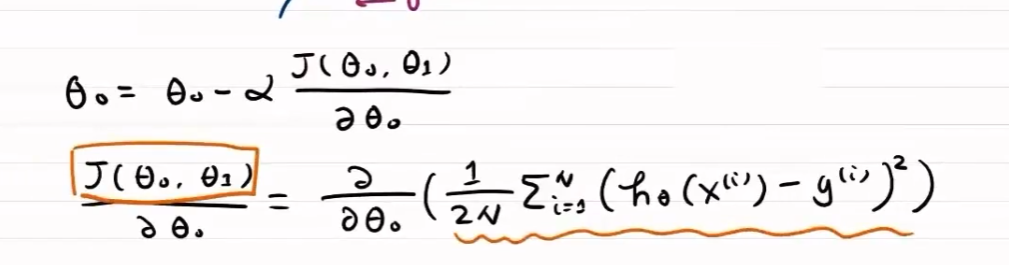 θ₀ = θ₀ - α J(θ₀, θ₁) / ∂θ₀
J(θ₀, θ₁) / ∂θ₀ = ∂ / ∂θ₀ ( 1 / 2N Σᵢ₌₁ᴺ (h_θ(x⁽ⁱ⁾) - y⁽ⁱ⁾)² )